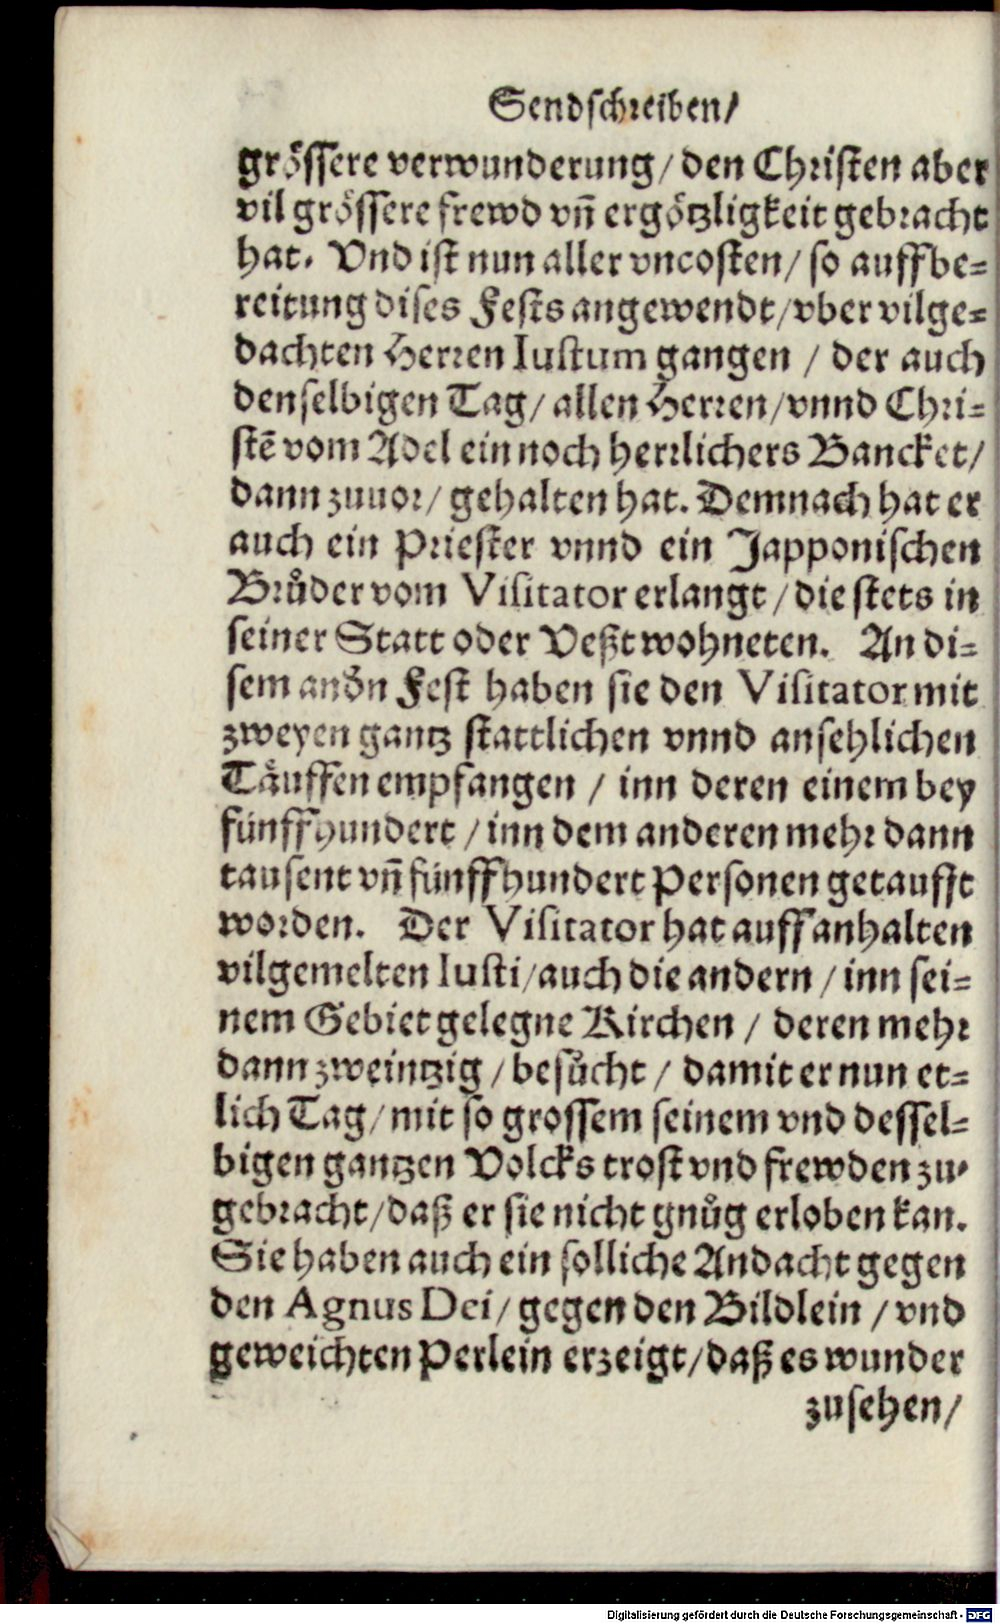 Sendschreiben/
grössere verwunderung/ den Christen aber
vil grössere frewd vñ ergötzligkeit gebracht
hat. Vnd ist nun aller vncosten/ so auffbe-
reitung dises Fests angewendt/ vber vilge-
dachten Herren Iustum gangen / der auch
denselbigen Tag/ allen Herren/ vnnd Chri-
stẽ vom Adel ein noch herrlichers Bancket/
dann zuuor/ gehalten hat. Demnach hat er
auch ein Priester vnnd ein Japponischen
Brůder vom Visitator erlangt / die stets in
seiner Statt oder Veßt wohneten. An di-
sem andn Fest haben sie den Visitator mit
zweyen gantz stattlichen vnnd ansehlichen
Täuffen empfangen / inn deren einem bey
fünffhundert / inn dem anderen mehr dann
tausent vñ fünffhundert Personen getaufft
worden. Der Visitator hat auff anhalten
vilgemelten Iusti/ auch die andern / inn sei-
nem Gebiet gelegne Kirchen / deren mehr
dann zweintzig / besůcht / damit er nun et-
lich Tag/ mit so grossem seinem vnd dessel-
bigen gantzen Volcks trost vnd frewden zu-
gebracht/ daß er sie nicht gnůg erloben kan.
Sie haben auch ein solliche Andacht gegen
den Agnus Dei/ gegen den Bildlein / vnd
geweichten Perlein erzeigt/ daß es wunder
zusehen/
Digitalisierung gefördert durch die Deutsche Forschungsgemeinschaft - DFG